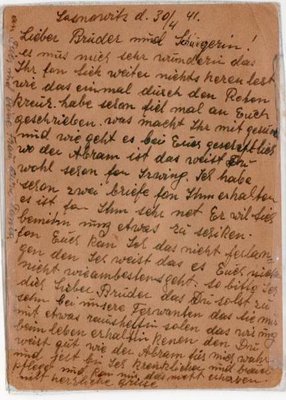 Sosnowitz d. 30/4 41.
Lieber Brüder und Schwigerin!
es mus mich sehr wundern das
Ihr fon Sich weiter nichts heren lest
wie das einmal durch den Roten
kreuz. habe schon fiel mal an Euch
geschrieben. was macht Ihr mit gesund
und wie geht es bei Euch gescheftlich
wo der Abram ist das weist Du
wohl schon fon Irwing. Ich habe
schon zwei briefe fon Ihm erhalten
es ist fon Ihm sehr net Er wil Sich
bemihn uns etwas zu schiken.
fon Euch kan Ich das nicht ferlan
gen den Ich weist das es Euch nicht
nicht so am bestens geht. so bitte ich
dich Lieber Brüder das Du solst zu
sehn bei unsere Ferwanten das sie uns
mit etwas raushelfen solen das wir uns
beim leben erhalten kenen den Du
weist gut wie der Abram für mich wahr
und jezt bin Ich krenklicher und brauche
pflege und kan nur das matt erhaben.
mit herzliche grüse